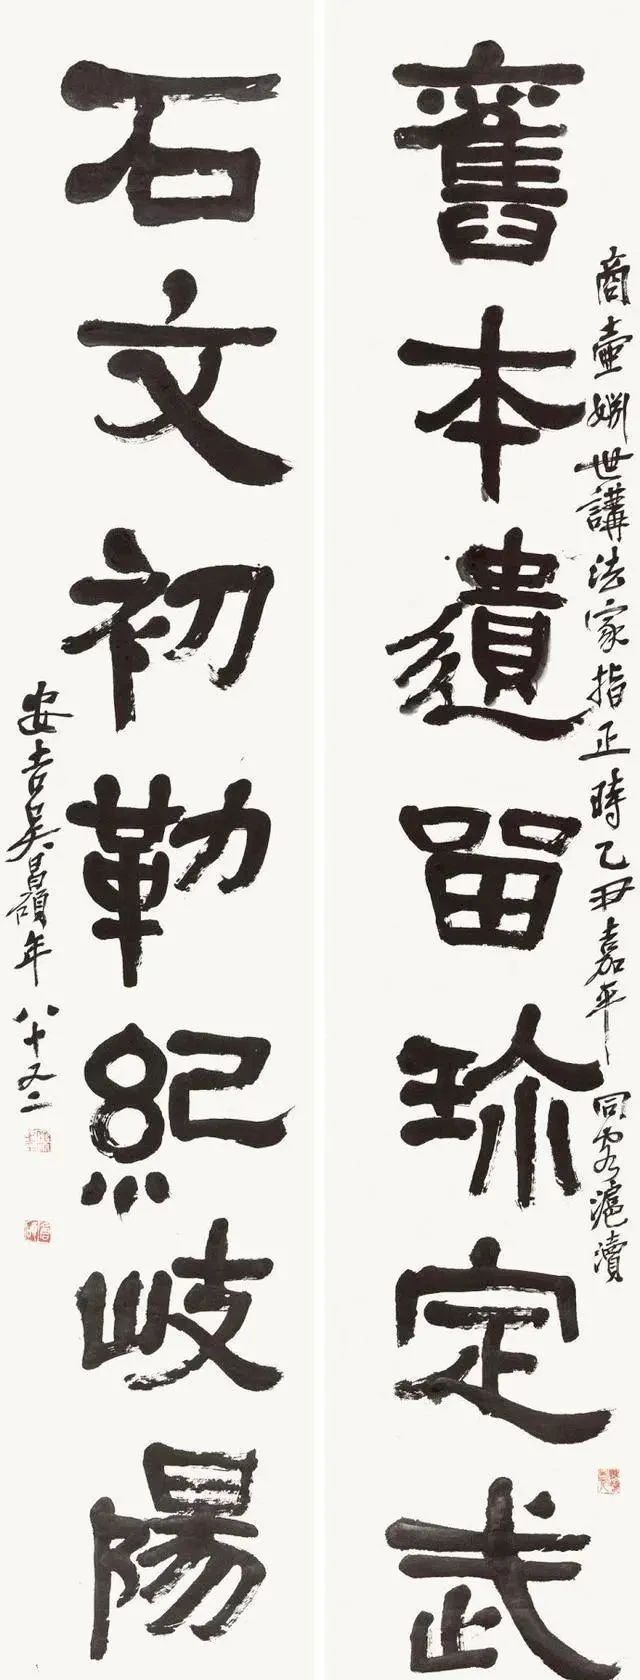 商壺姻世講法家指正時乙丑嘉平同客滬瀆
舊本遺留珎定武
石文初勒紀岐陽
安吉吳昌碩年八十又二